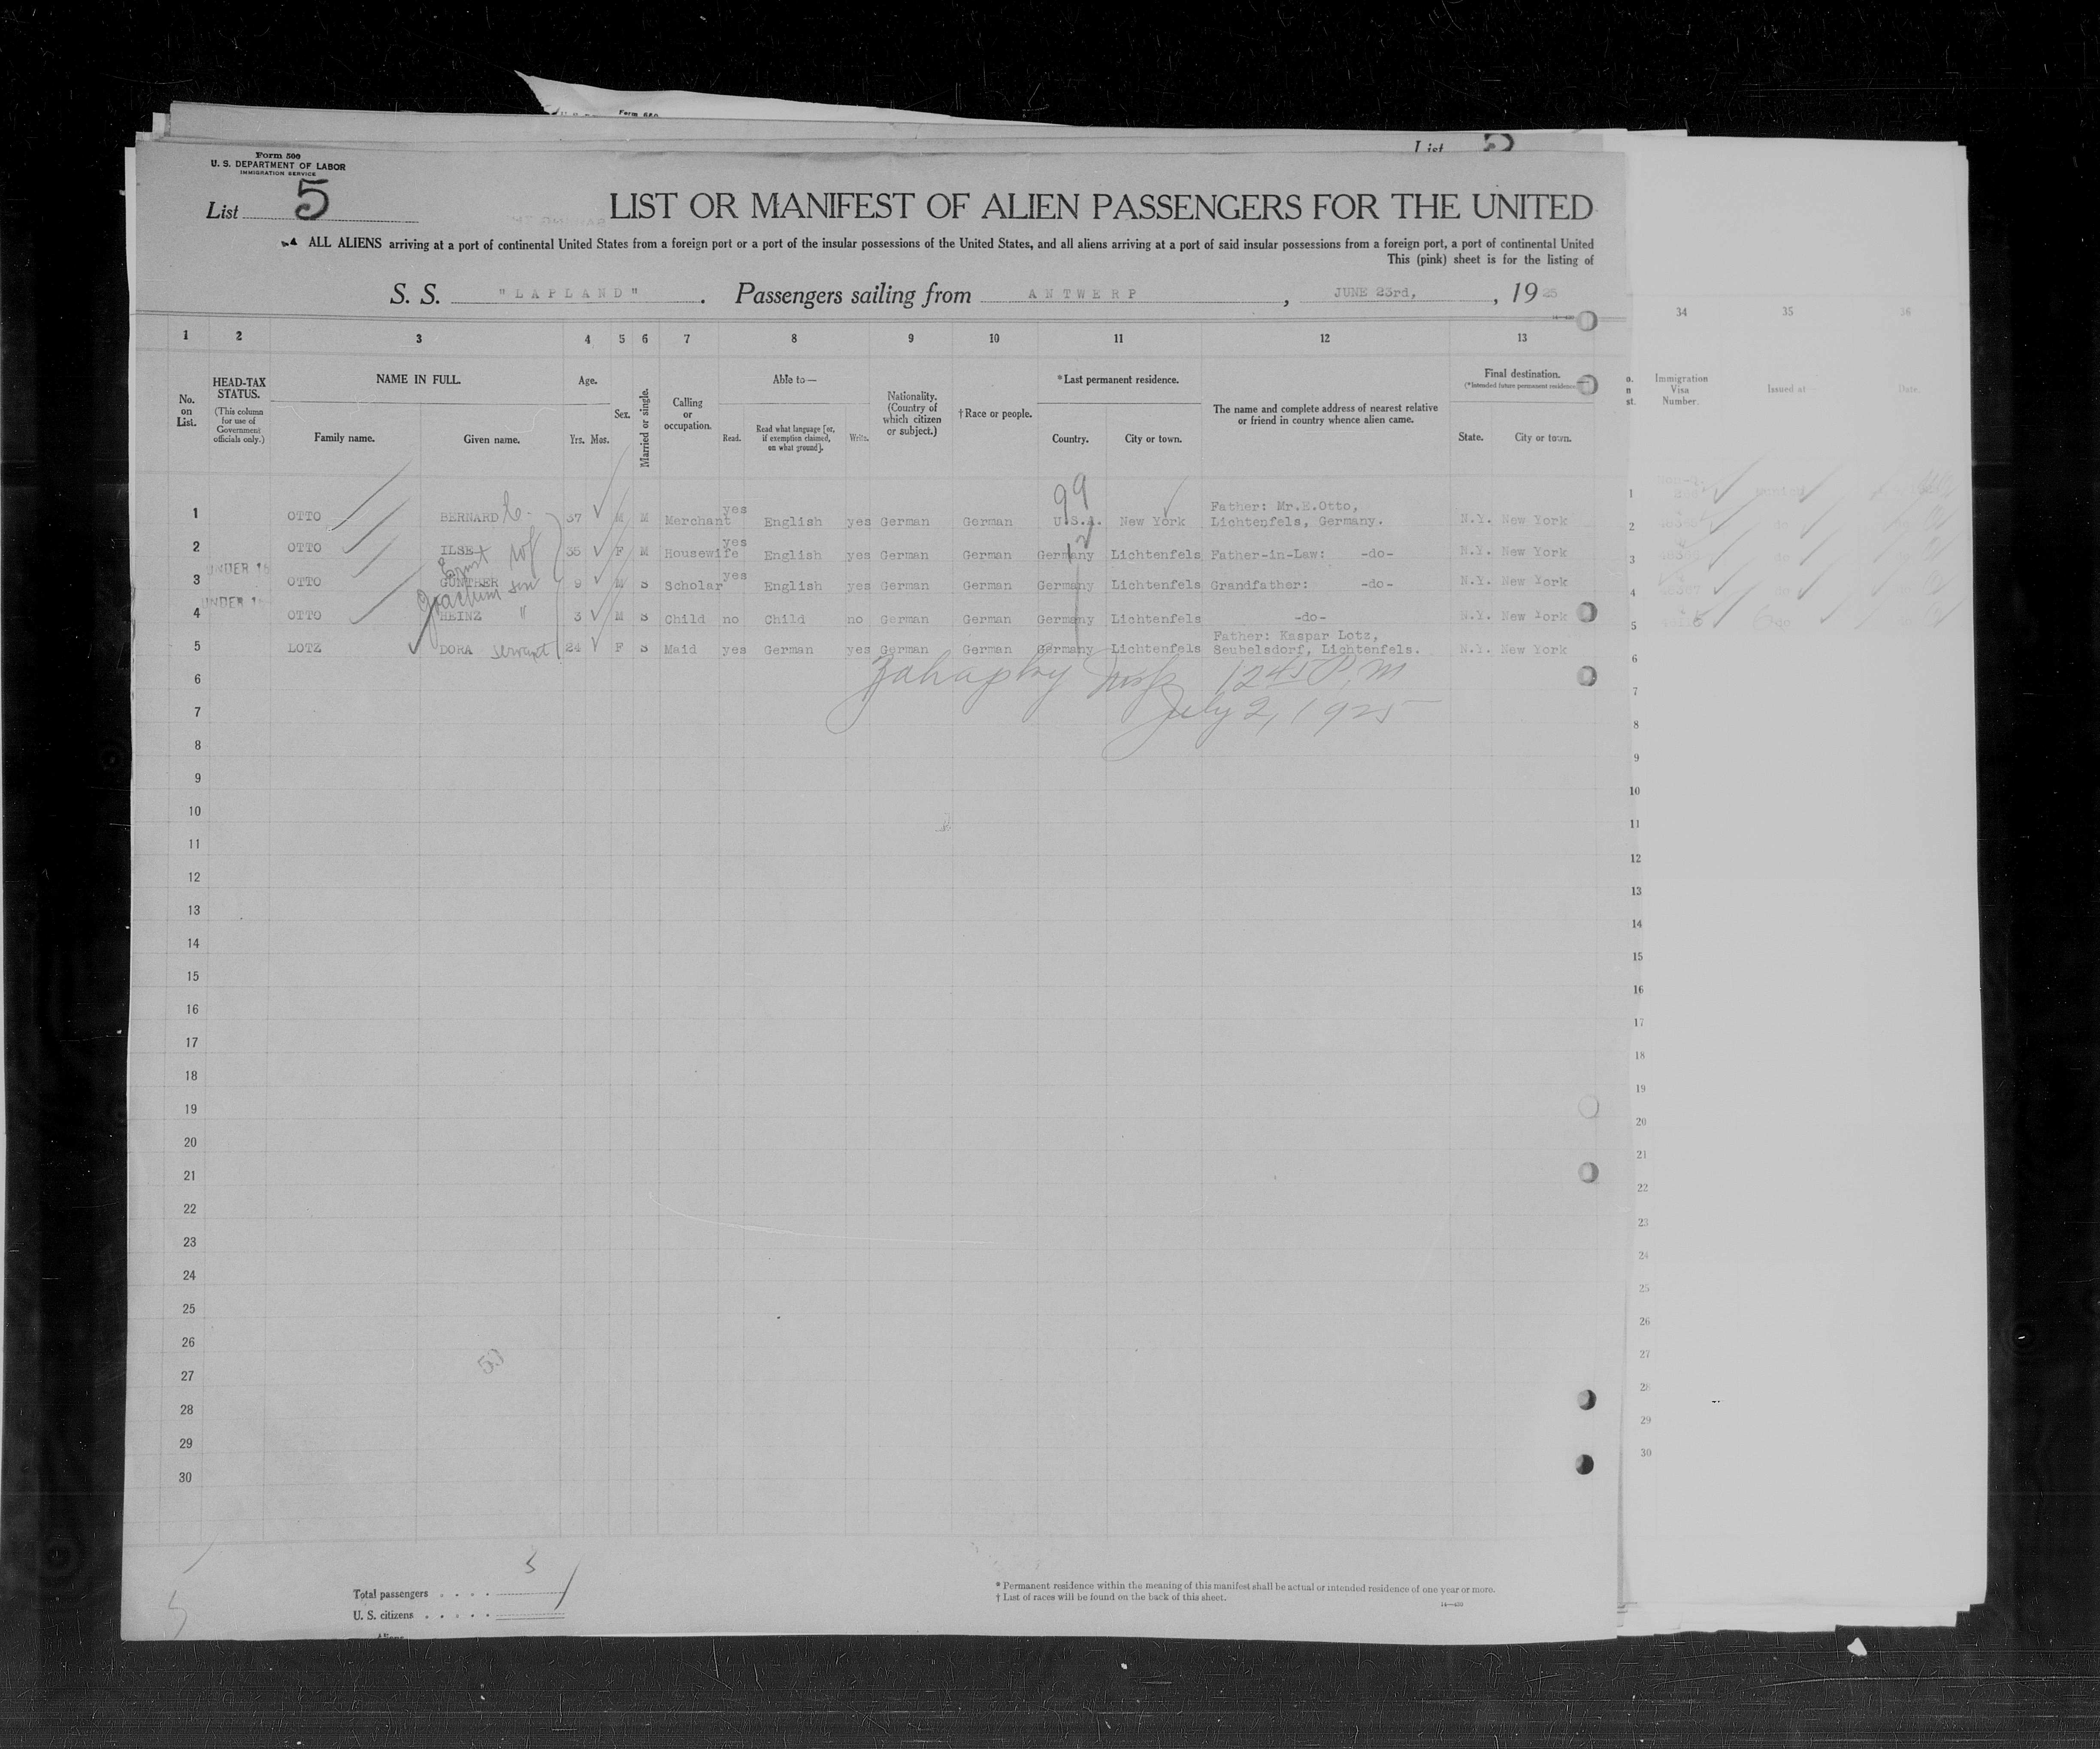 Form 500
U. S. DEPARTMENT OF LABOR
IMMIGRATION SERVICE
List 5
List 5
LIST OR MANIFEST OF ALIEN PASSENGERS FOR THE UNITED
ALL ALIENS arriving at a port of continental United States from a foreign port or a port of the insular possessions of the United States, and all aliens arriving at a port of said insular possessions from a foreign port, a port of continental United
This (pink) sheet is for the listing of
S. S. "LAPLAND". Passengers sailing from ANTWERP, JUNE 23rd, 1925
1 2 3 4 5 6 7 8 9 10 11 12 13 34 35 36
No. on List.
HEAD-TAX STATUS.
(This column for use of Government officials only.)
NAME IN FULL.
Family name. Given name.
Age.
Yrs. Mos.
Sex.
Married or single.
Calling or occupation.
Able to—
Read. Read what language [or, if exemption claimed, on what ground]. Write.
Nationality. (Country of which citizen or subject.)
†Race or people.
*Last permanent residence.
Country. City or town.
The name and complete address of nearest relative or friend in country whence alien came.
Final destination.
(*Intended future permanent residence.)
State. City or town.
Immigration Visa Number.
Issued at
Date
99
1 OTTO BERNARD 37 M M Merchant yes English yes German German U.S.A. New York Father: Mr.E.Otto, Lichtenfels, Germany. N.Y. New York
2 OTTO ILSE wf 35 F M Housewife yes English yes German German Germany Lichtenfels Father-in-Law: -do- N.Y. New York
UNDER 16
3 OTTO Ernst GUNTHER son 9 M S Scholar yes English yes German German Germany Lichtenfels Grandfather: -do- N.Y. New York
UNDER 16
4 OTTO Joachim HEINZ " 3 M S Child no Child no German German Germany Lichtenfels -do- N.Y. New York
5 LOTZ DORA servant 24 F S Maid yes German yes German German Germany Lichtenfels Father: Kaspar Lotz, Seubelsdorf, Lichtenfels. N.Y. New York
6 12 45 P.M
7 July 2, 1925
8
9
10
11
12
13
14
15
16
17
18
19
20
21
22
23
24
25
26
27
28
29
30
Total passengers 5
U. S. citizens
* Permanent residence within the meaning of this manifest shall be actual or intended residence of one year or more.
† List of races will be found on the back of this sheet.
14—430